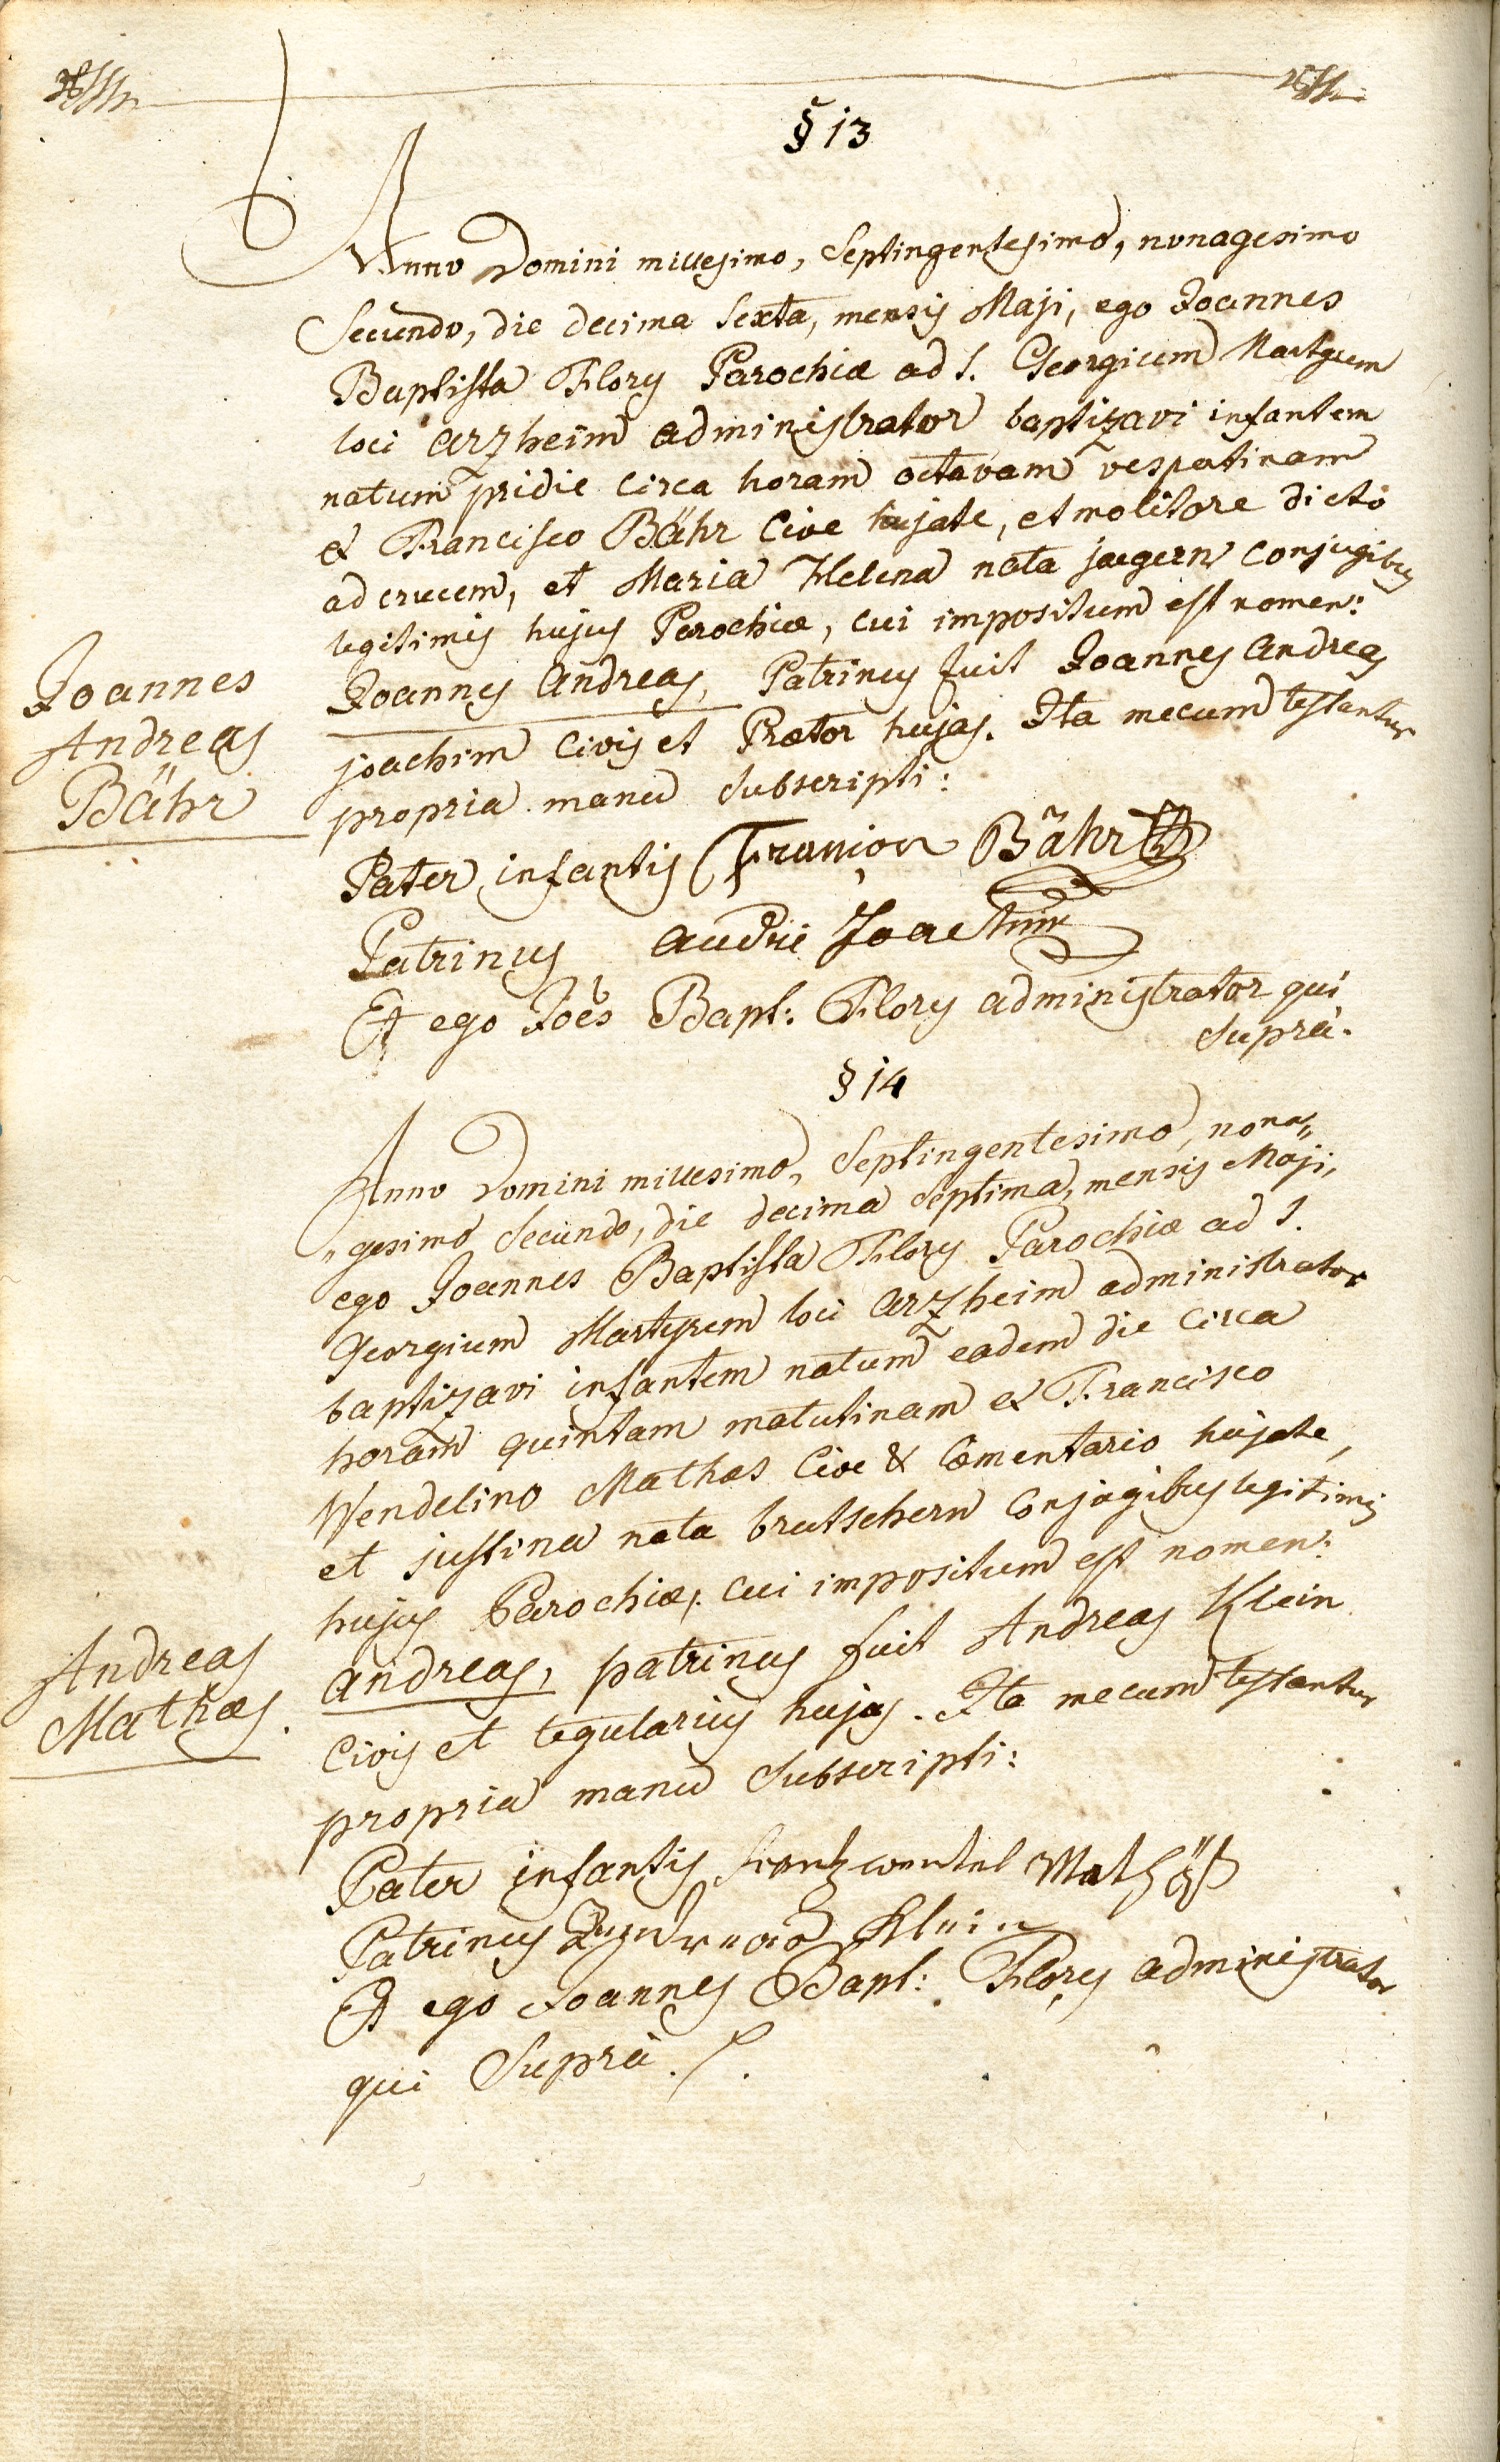 § 13
Anno Domini millesimo, Septingentesimo, nonagesimo
Secundo, die decima Sexta, mensis Maji, ego Joannes
Baptista Flory Parochiæ ad S. Georgium Martyrem
loci Arzheim administrator baptizavi infantem
natum pridie circa horam octavam vespertinam
ex Francisco Bähr Cive hujate, et molitore dicto
ad crucem, et Maria Helena nata jaegern conjugibus
legitimis hujus Parochiæ, cui impositum est nomen:
Joannes Andreas, Patrinus fuit Joannes Andreas
joachim Civis et Prætor hujas. Ita mecum testantur
propria manu Subscripti:
Joannes
Andreas
Bähr
Pater infantis Bähr
Patrinus andre Joachim
Et ego Joēs Bapt: Flory administrator qui
Supra.
§ 14
Anno Domini millesimo, Septingentesimo, nona„
„gesimo Secundo, die decima Septima, mensis Maji,
ego Joannes Baptista Flory Parochiæ ad S.
Georgium Martyrem loci Arzheim administrator
baptizavi infantem natum eadem die circa
horam quintam matutinam ex Francisco
Wendelino Mathæs Cive & Cæmentario hujate,
et justina nata brutschern Conjugibus legitimis
hujus Parochiæ, cui impositum est nomen:
andreas, patrinus fuit Andreas Klein
Civis et tegularius hujas. Ita mecum testantur
propria manu Subscripti:
Andreas
Mathæs.
Pater infantis frantz wentel Mathäß
Patrinus Klein
Et ego Joannes Bapt: Flory administrator
qui Supra.